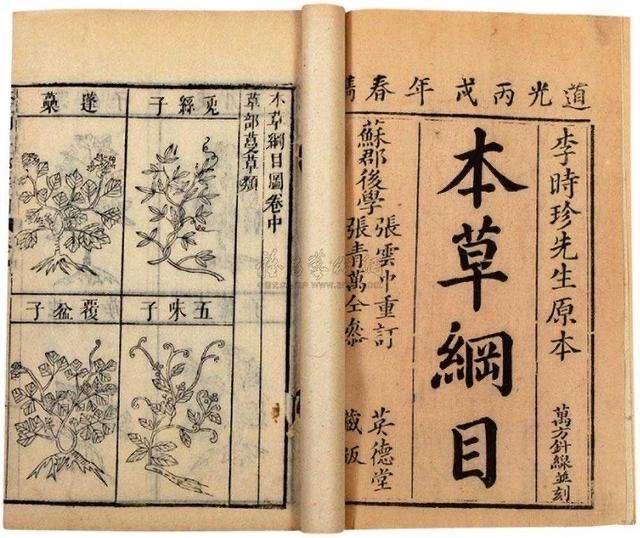 道光丙戌年春鐫
李時珍先生原本
萬方針線並刻
本草綱目
蘇郡後學
張雲中重訂
張青萬仝參
英德堂
藏板
本草綱目圖卷中
草部蔓草類
兔絲子
蓬蘽
五味子
覆盆子